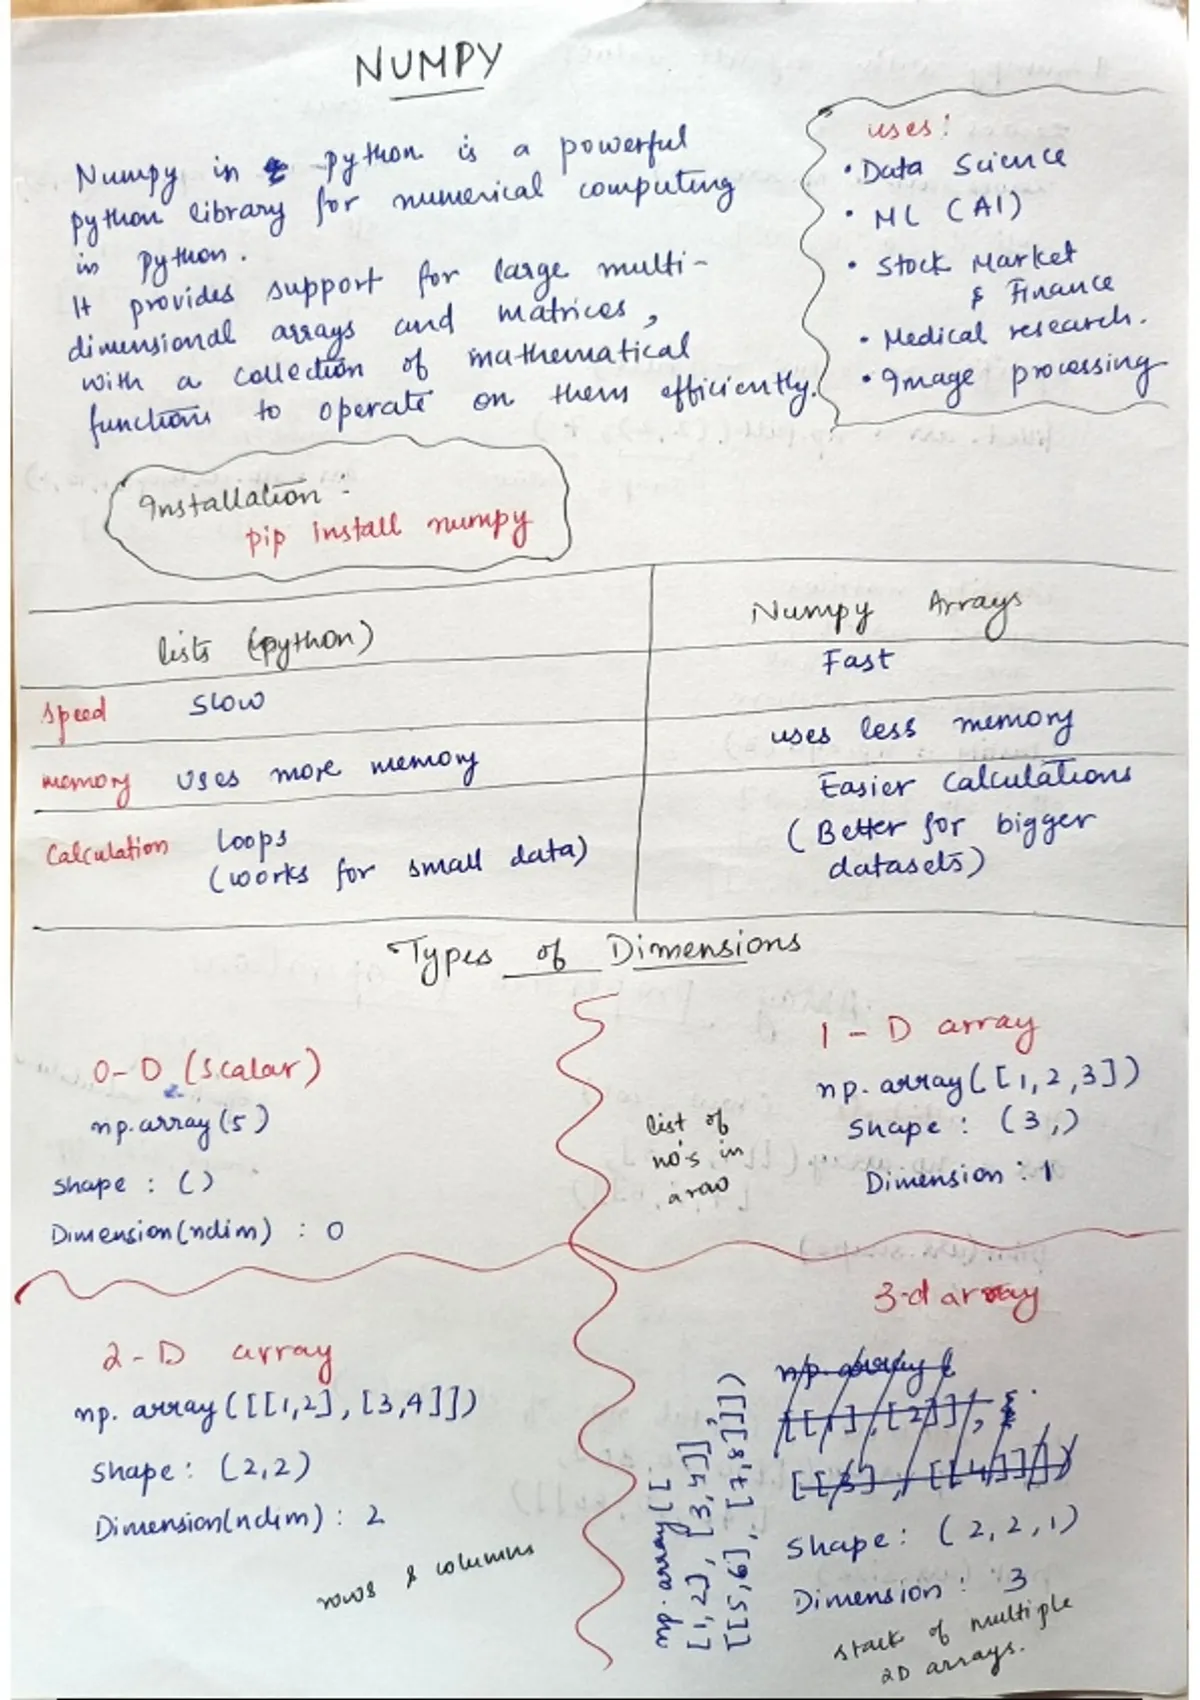 NUMPY
Numpy in python is a powerful
python library for numerical computing
in python.
It provides support for large multi-
dimensional arrays and matrices,
with a collection of mathematical
functions to operate on them efficiently.
uses:
• Data Science
• ML (AI)
• Stock Market
& Finance
• Medical research.
• Image processing
Installation:
pip install numpy
lists (python) Numpy Arrays
Speed Slow Fast
memory uses more memory uses less memory
Calculation Loops Easier Calculations
(works for small data) (Better for bigger
datasets)
Types of Dimensions
0-D (Scalar)
np.array(5)
Shape : ()
Dimension(ndim) : 0
1-D array
np.array([1,2,3])
Shape : (3,)
Dimension : 1
list of
no's in
a row
2-D array
np.array([[1,2],[3,4]])
Shape : (2,2)
Dimension(ndim) : 2
rows & columns
3-d array
np.array(
[[1],[2]],
[[3],[[4]]])
np.array([
[1,2],[3,4]]
[[5,6],[7,8]]])
Shape : (2,2,1)
Dimension : 3
stack of multiple
2D arrays.